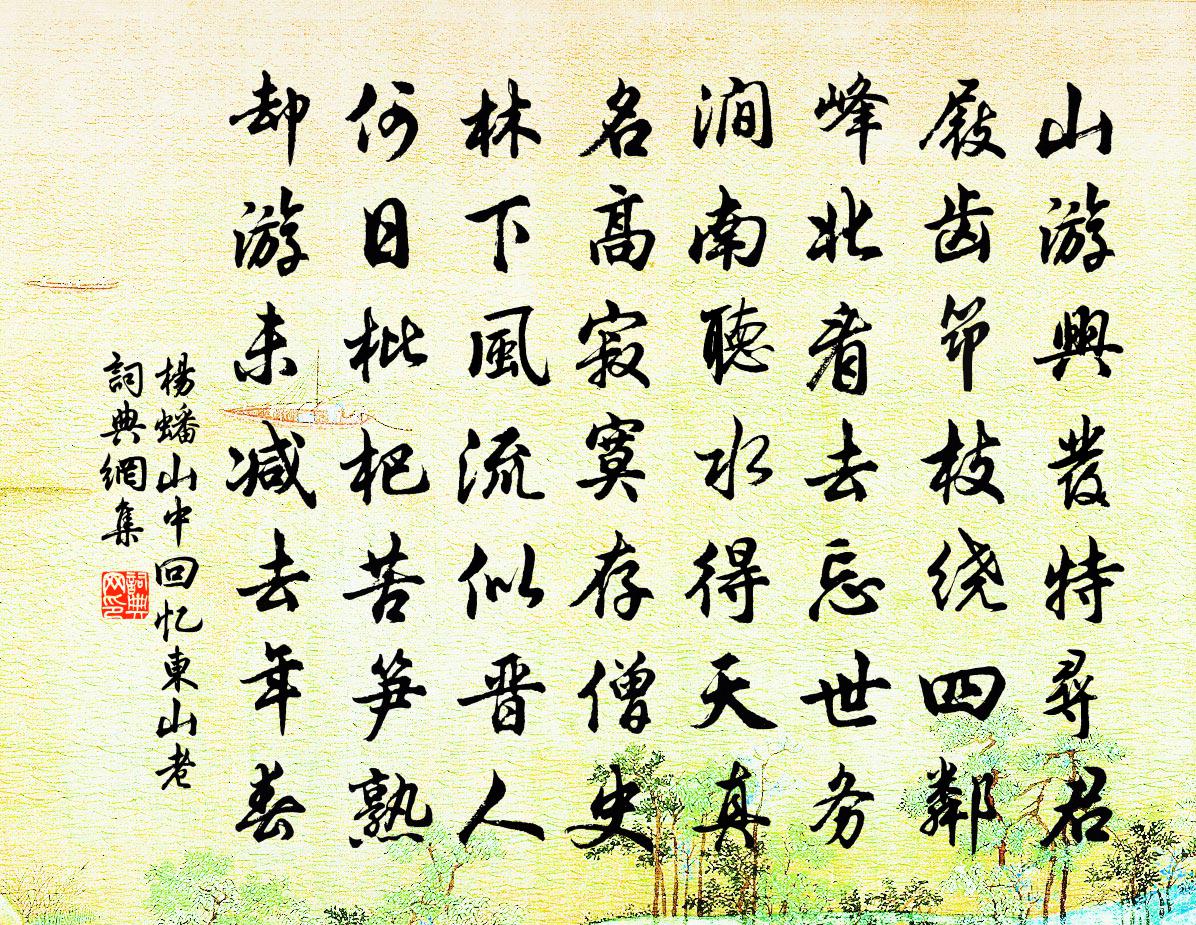 山游興發特尋君
屐齿笻枝绕四鄰
峰北看去忘世务
澗南聽水得天真
名高寂寞存僧史
林下風流似晋人
何日枇杷苦笋熟
却游未减去年春
楊蟠山中回忆東山老
詞典網集
詞典网印